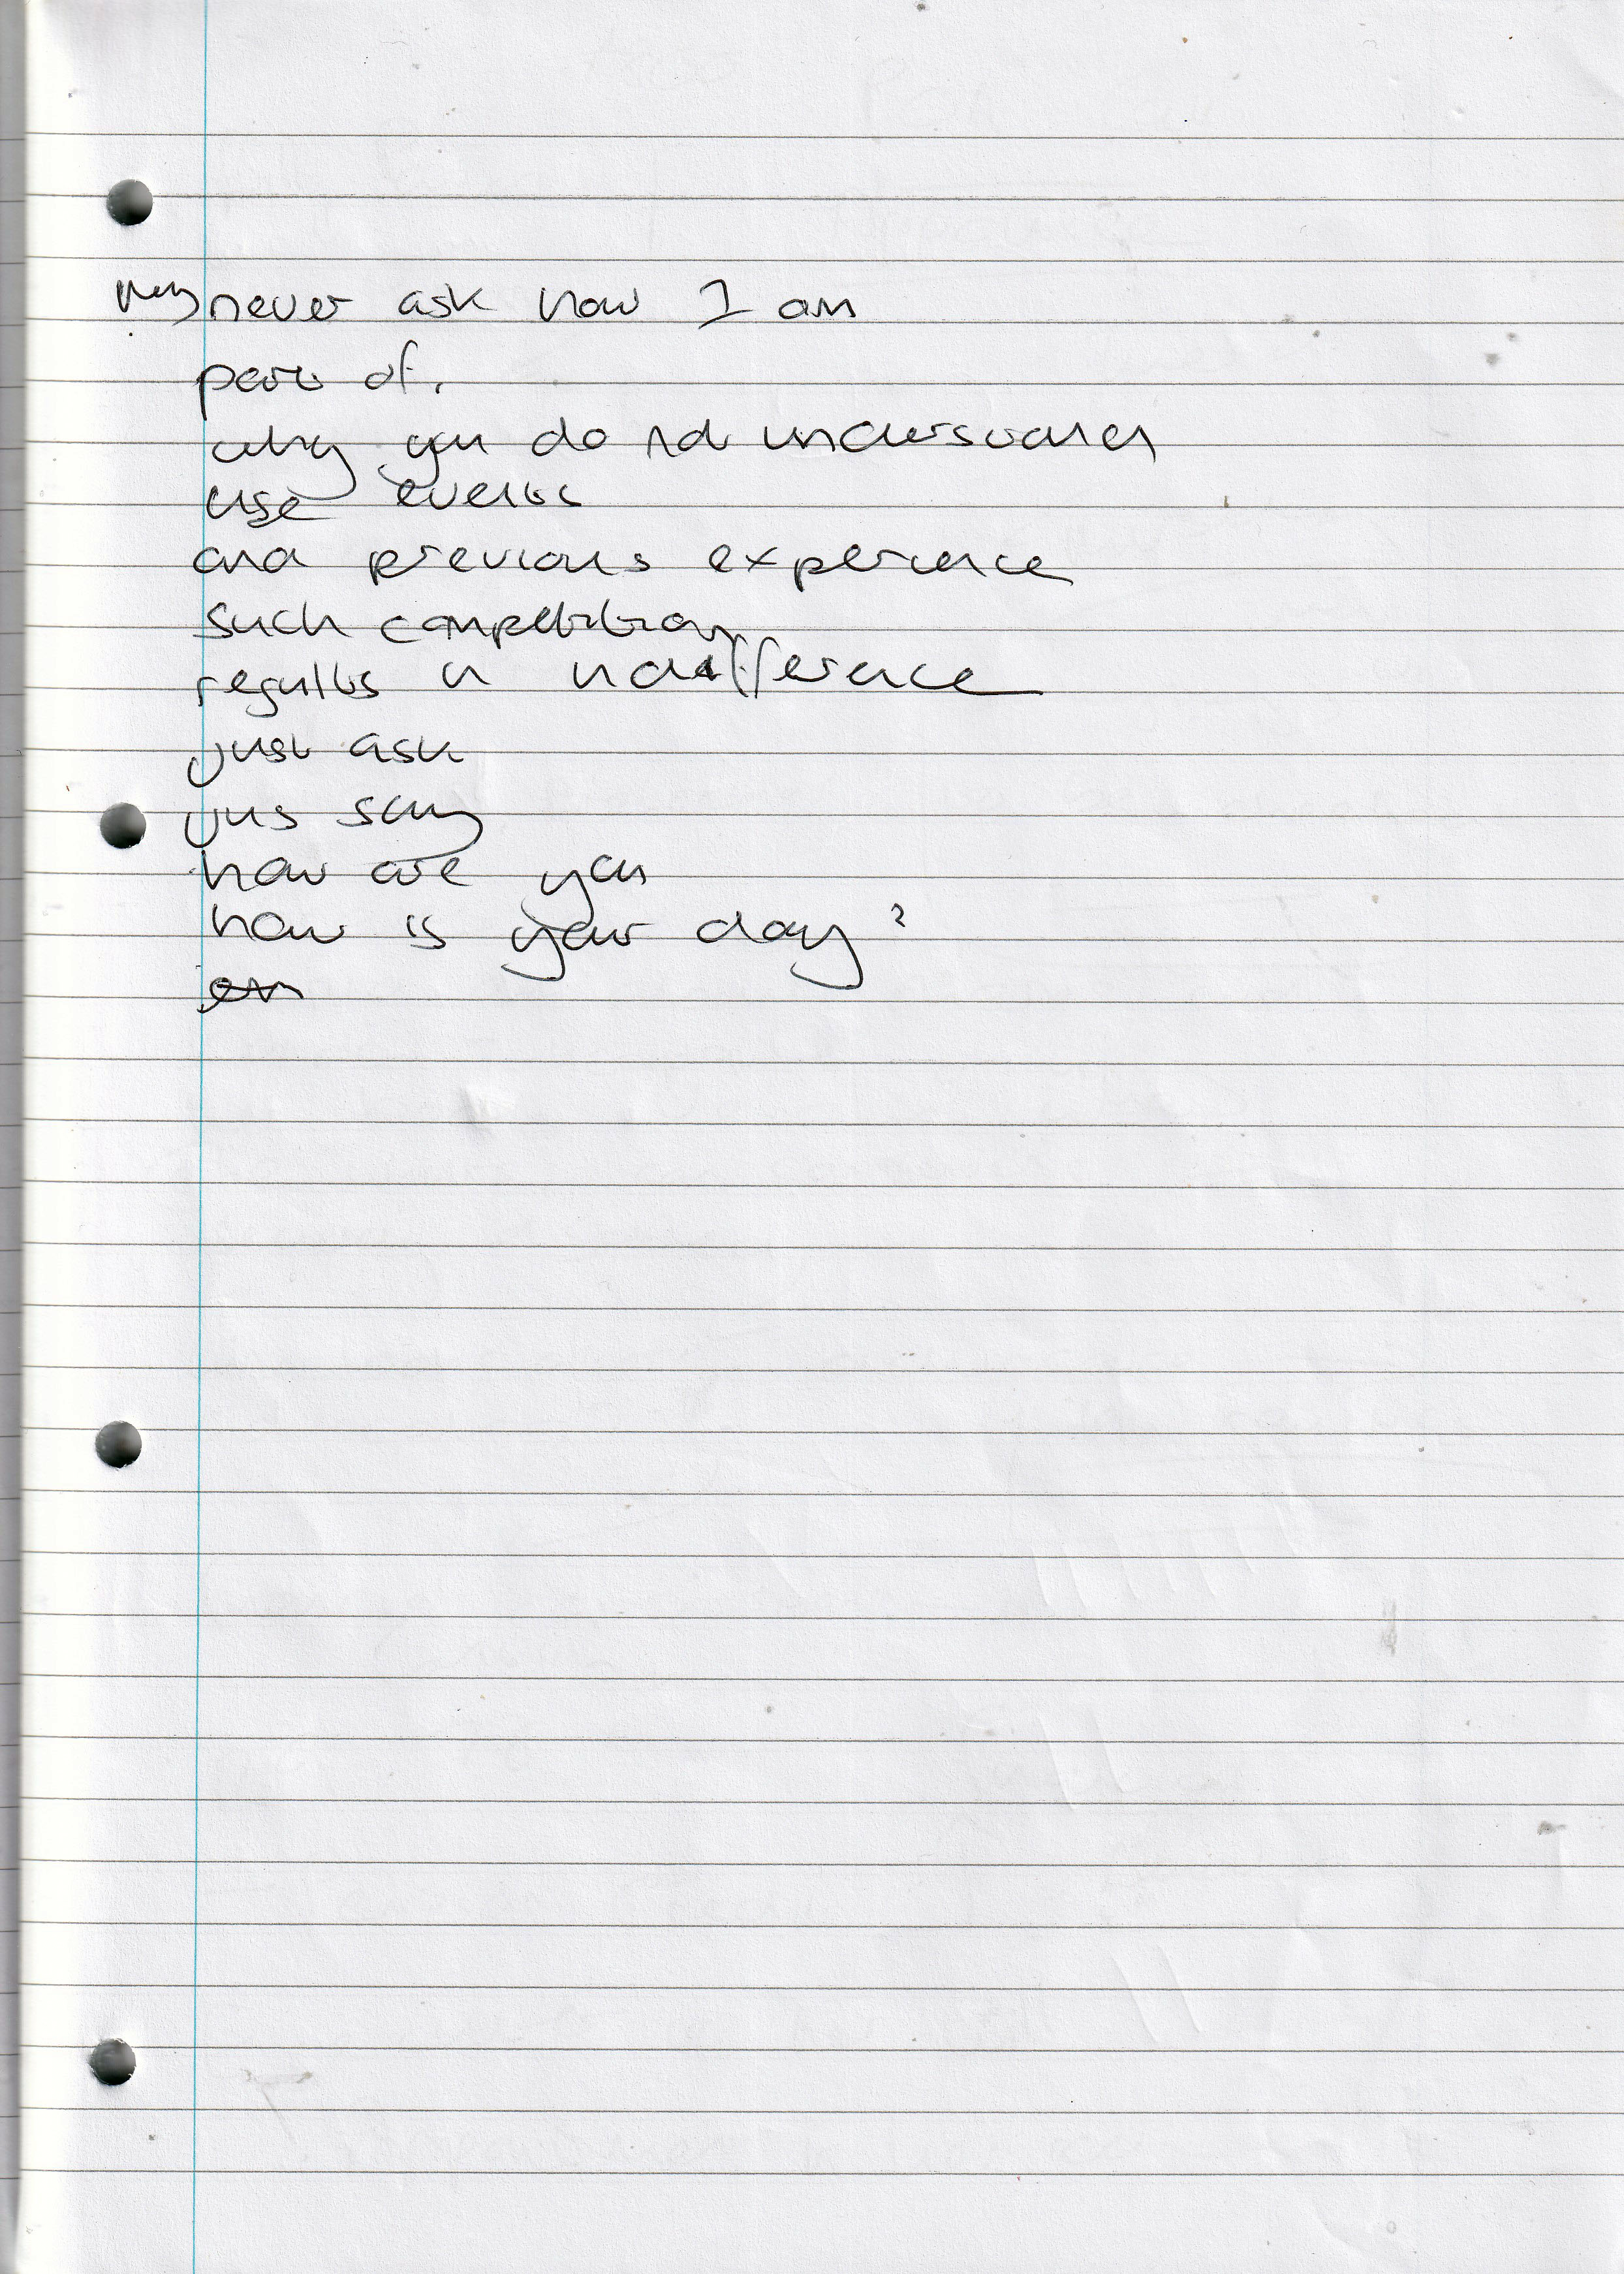 they never ask how I am
part of.
why you do not understand
use events
and previous experience
such competition
results in indifference
just ask
jus say
how are you
how is your day?